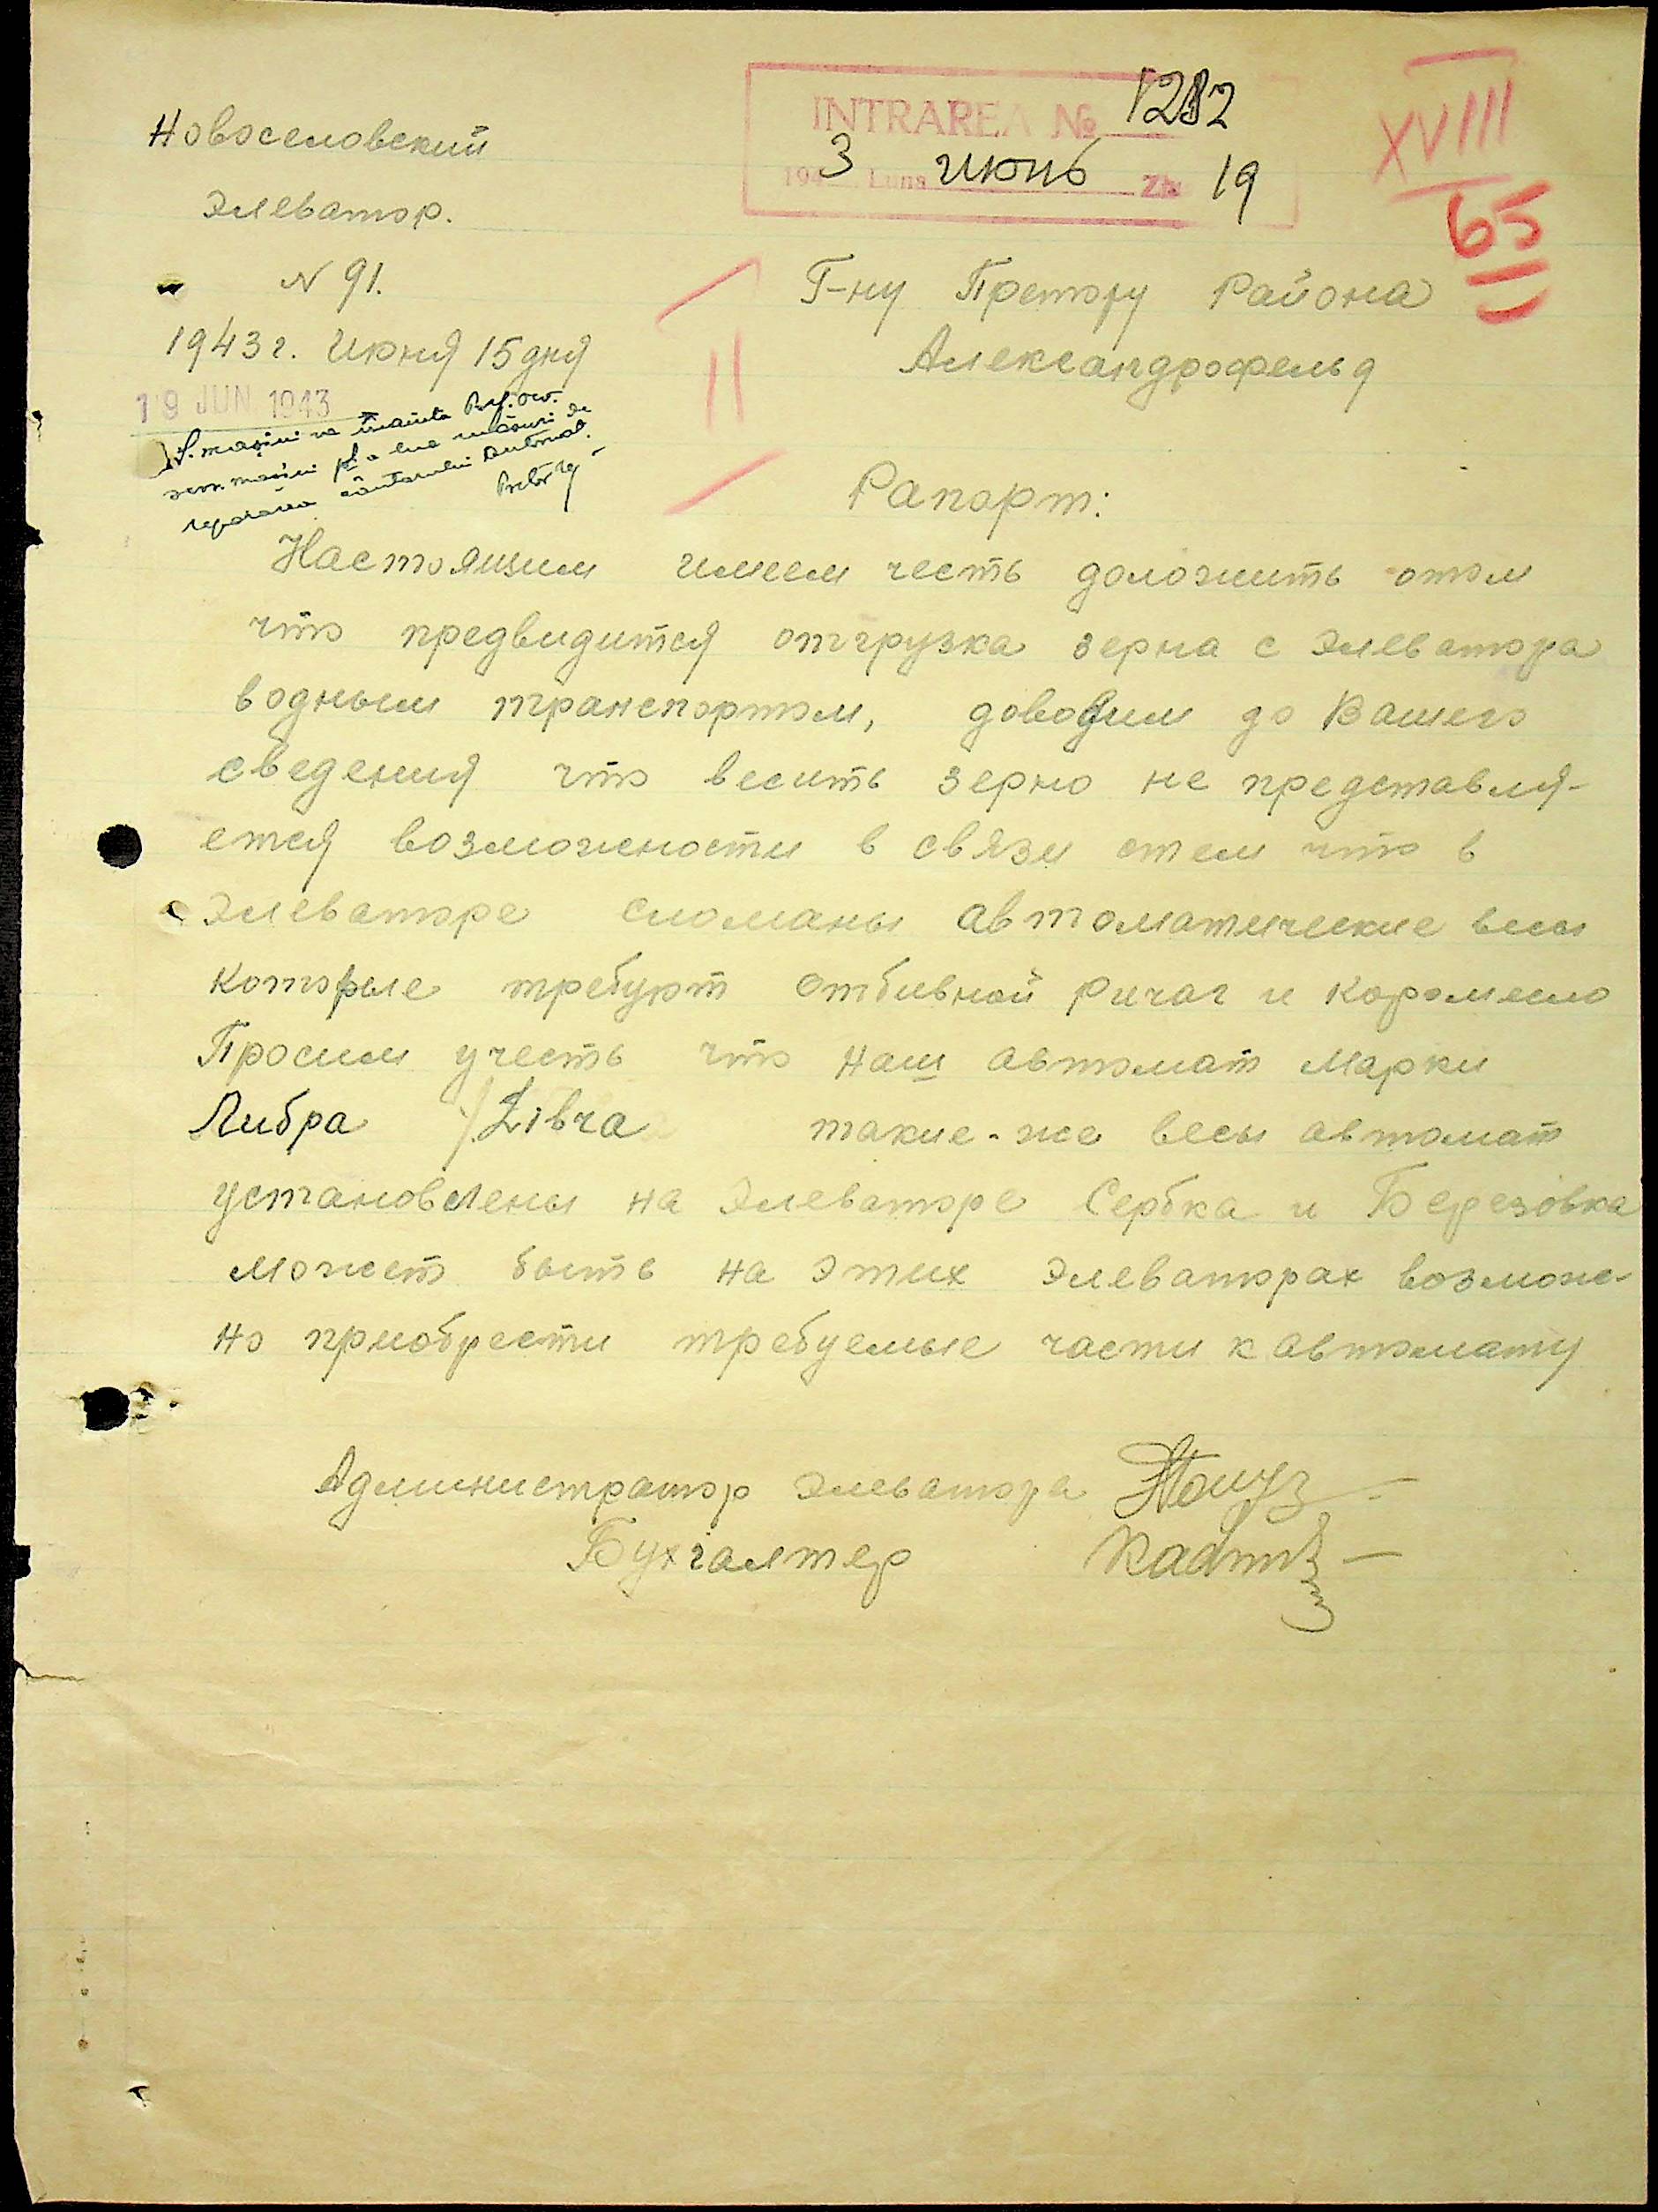 INTRAREA № 1282
1943 Luna июнь Ziua 19
XVIII
65
Новоселовский
Элеватор.
N 91.
1943 г. Июня 15 дня
19 JUN 1943
S. mașini va înainta
serv. mașini pt. a lua măsuri de
repararea cântarului automat.
Pretor
II
Г-ну Претору Района
Александрофельд
Рапорт:
Настоящим имеем честь доложить отом
что предвидится отгрузка зерна с Элеватора
водным транспортом, доводим до Вашего
сведения что весить зерно не представля-
ется возможности в связи стем что в
Элеваторе сломаны автоматические весы
которые требуют отбивной ричаг и коромесло
Просим учесть что наш автомат марки
Либра /Libra такие-же весы автомат
установлены на Элеваторе Сербка и Березовка
может быть на этих Элеваторах возмож-
но приобрести требуемые части к автомату
Администратор Элеватора
Бухгалтер